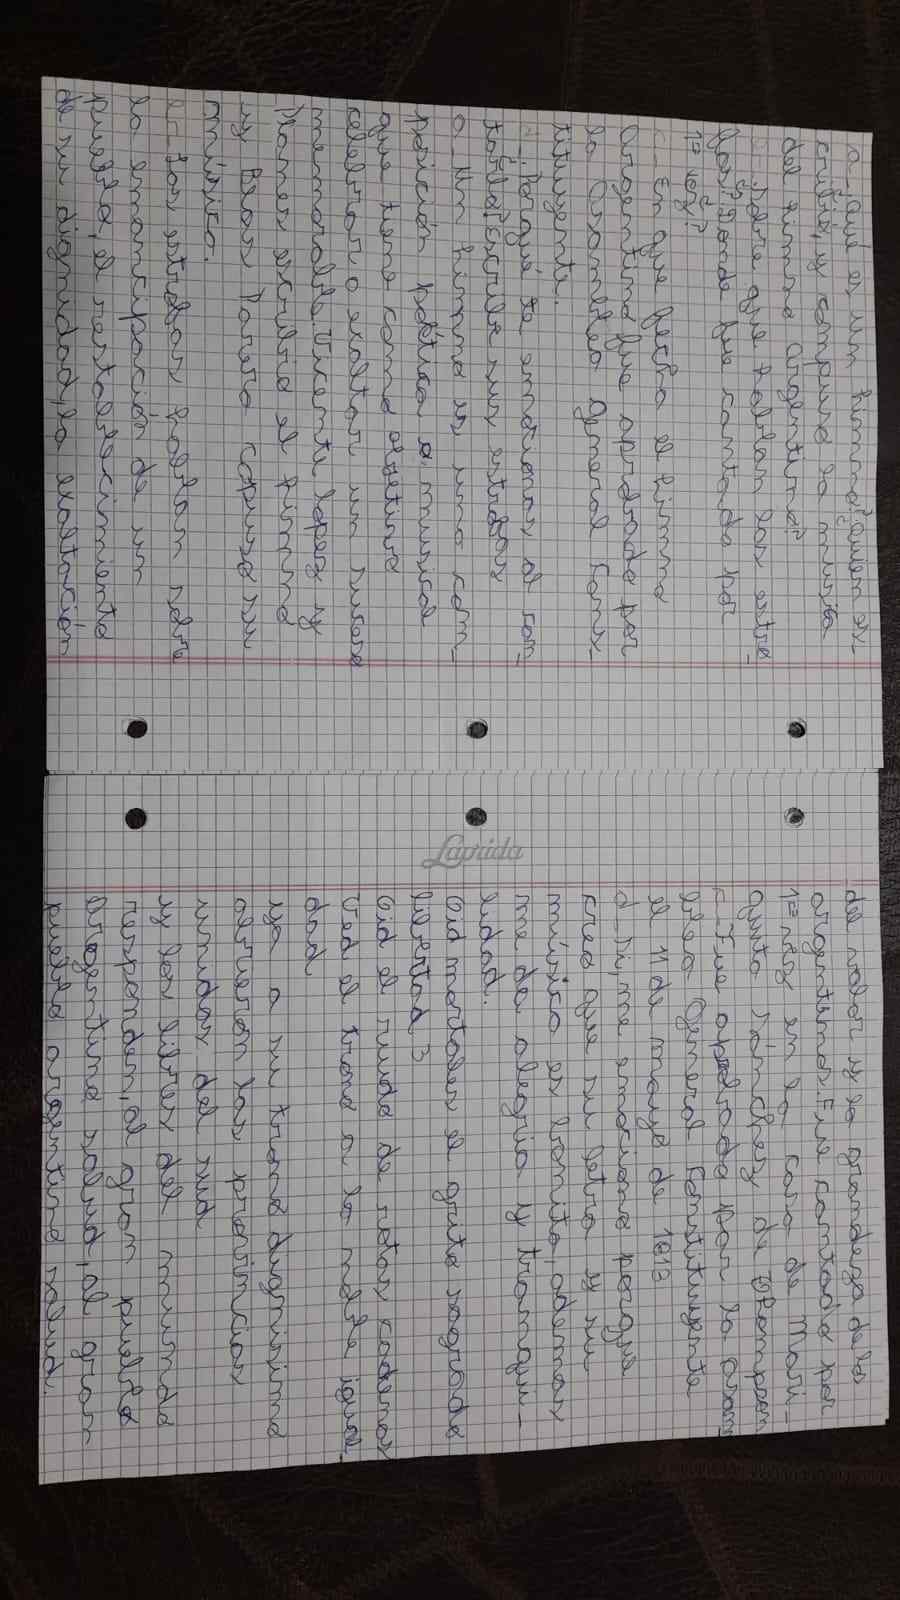 a-¿qué es un himno? ¿quien es-
cribió, y compuso la musica
del himno argentino?
b-¿Sobre que hablan las estro-
fas? ¿Donde fue cantado por
1º vez?
c-¿En que fecha el himno
Argentino fue aprobado por
la Asamblea general Cons-
tituyente.
d-¿Porqué te emocionas al can-
tarlo? escribe sus estrofas
a-Un himno es una com-
posición poética o musical
que tiene como objetivo
celebrar o exaltar un suceso
memorable. Vicente lopez y
Planes escribio el himno
y Blas Parera compuso su
música.
b-Las estrofas hablan sobre
la emancipación de un
pueblo, el restablecimiento
de su dignidad, la exaltación
del valor y la grandeza de los
argentinos. Fue cantado por
1º vez en la casa de Mari-
quita Sánchez de Thompson
c-Fue aprobado por la asam
blea General Constituyente
el 11 de mayo de 1813
d-Si, me emociona porque
creo que su letra y su
música es bonita, ademas
me da alegria y tranqui-
lidad.
Oid mortales el grito sagrado
libertad 3
Oid el ruido de rotas cadenas
Ved el trono a la noble igual
dad
ya a su trono dignisimo
abrieron las provincias
unidas del sud
y los libres del mundo
responden, al gran pueblo
argentino salud, al gran
pueblo argentino salud.
Laprida